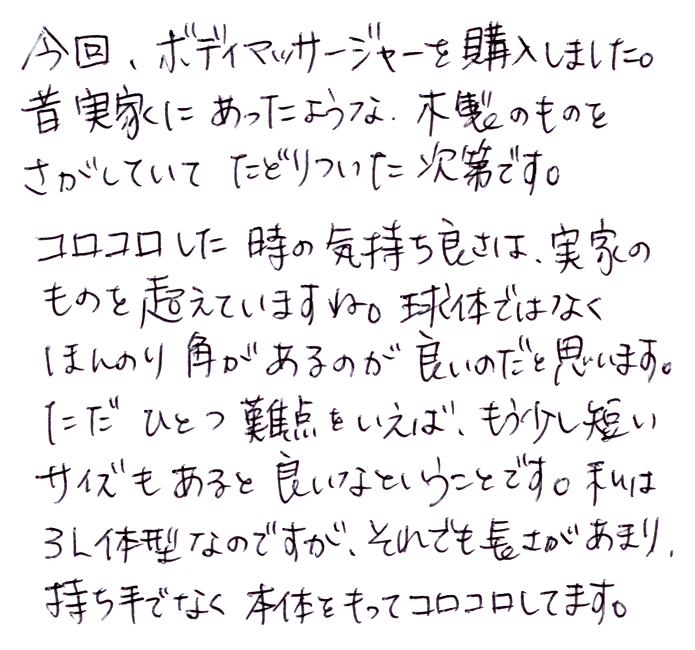 今回、ボディマッサージャーを購入しました。
昔実家にあったような、木製のものを
さがしていてたどりついた次第です。
コロコロした時の気持ち良さは、実家の
ものを超えていますね。球体ではなく
ほんのり角があるのが良いのだと思います。
ただひとつ難点をいえば、もう少し短い
サイズもあると良いなということです。私は
3L体型なのですが、それでも長さがあまり、
持ち手でなく本体をもってコロコロしてます。